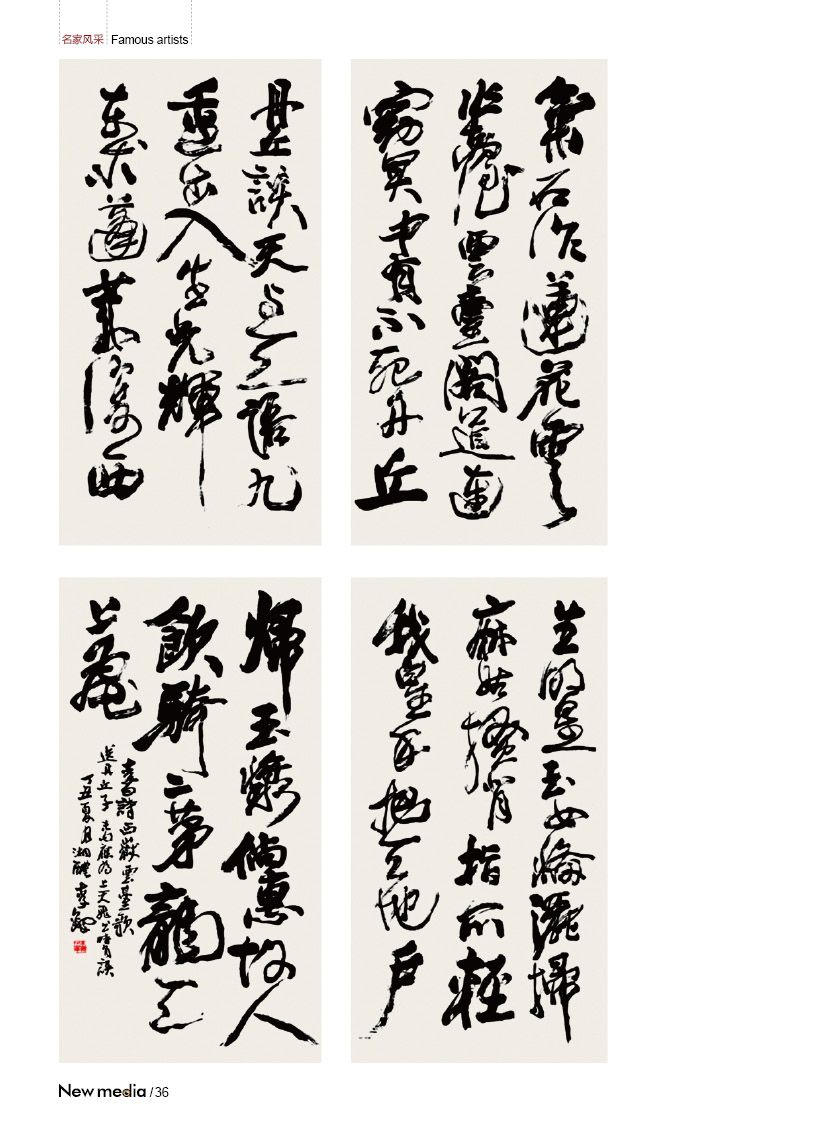 名家风采 Famous artists
氣石作蓮花雲
作臺雲臺閣道連
窈冥中有不死丹丘
生明星玉女備灑掃
麻姑搔背指爪輕
我皇手把天地戶
丹丘談天与天語九
重出入生光輝
東求蓬萊復西
歸玉漿倘惠故人
飲騎二茅龍天
上飛
李白詩西嶽雲臺歌
送丹丘子 應為上天飛 誤
丁丑夏月湘醴李鐸
New media /36